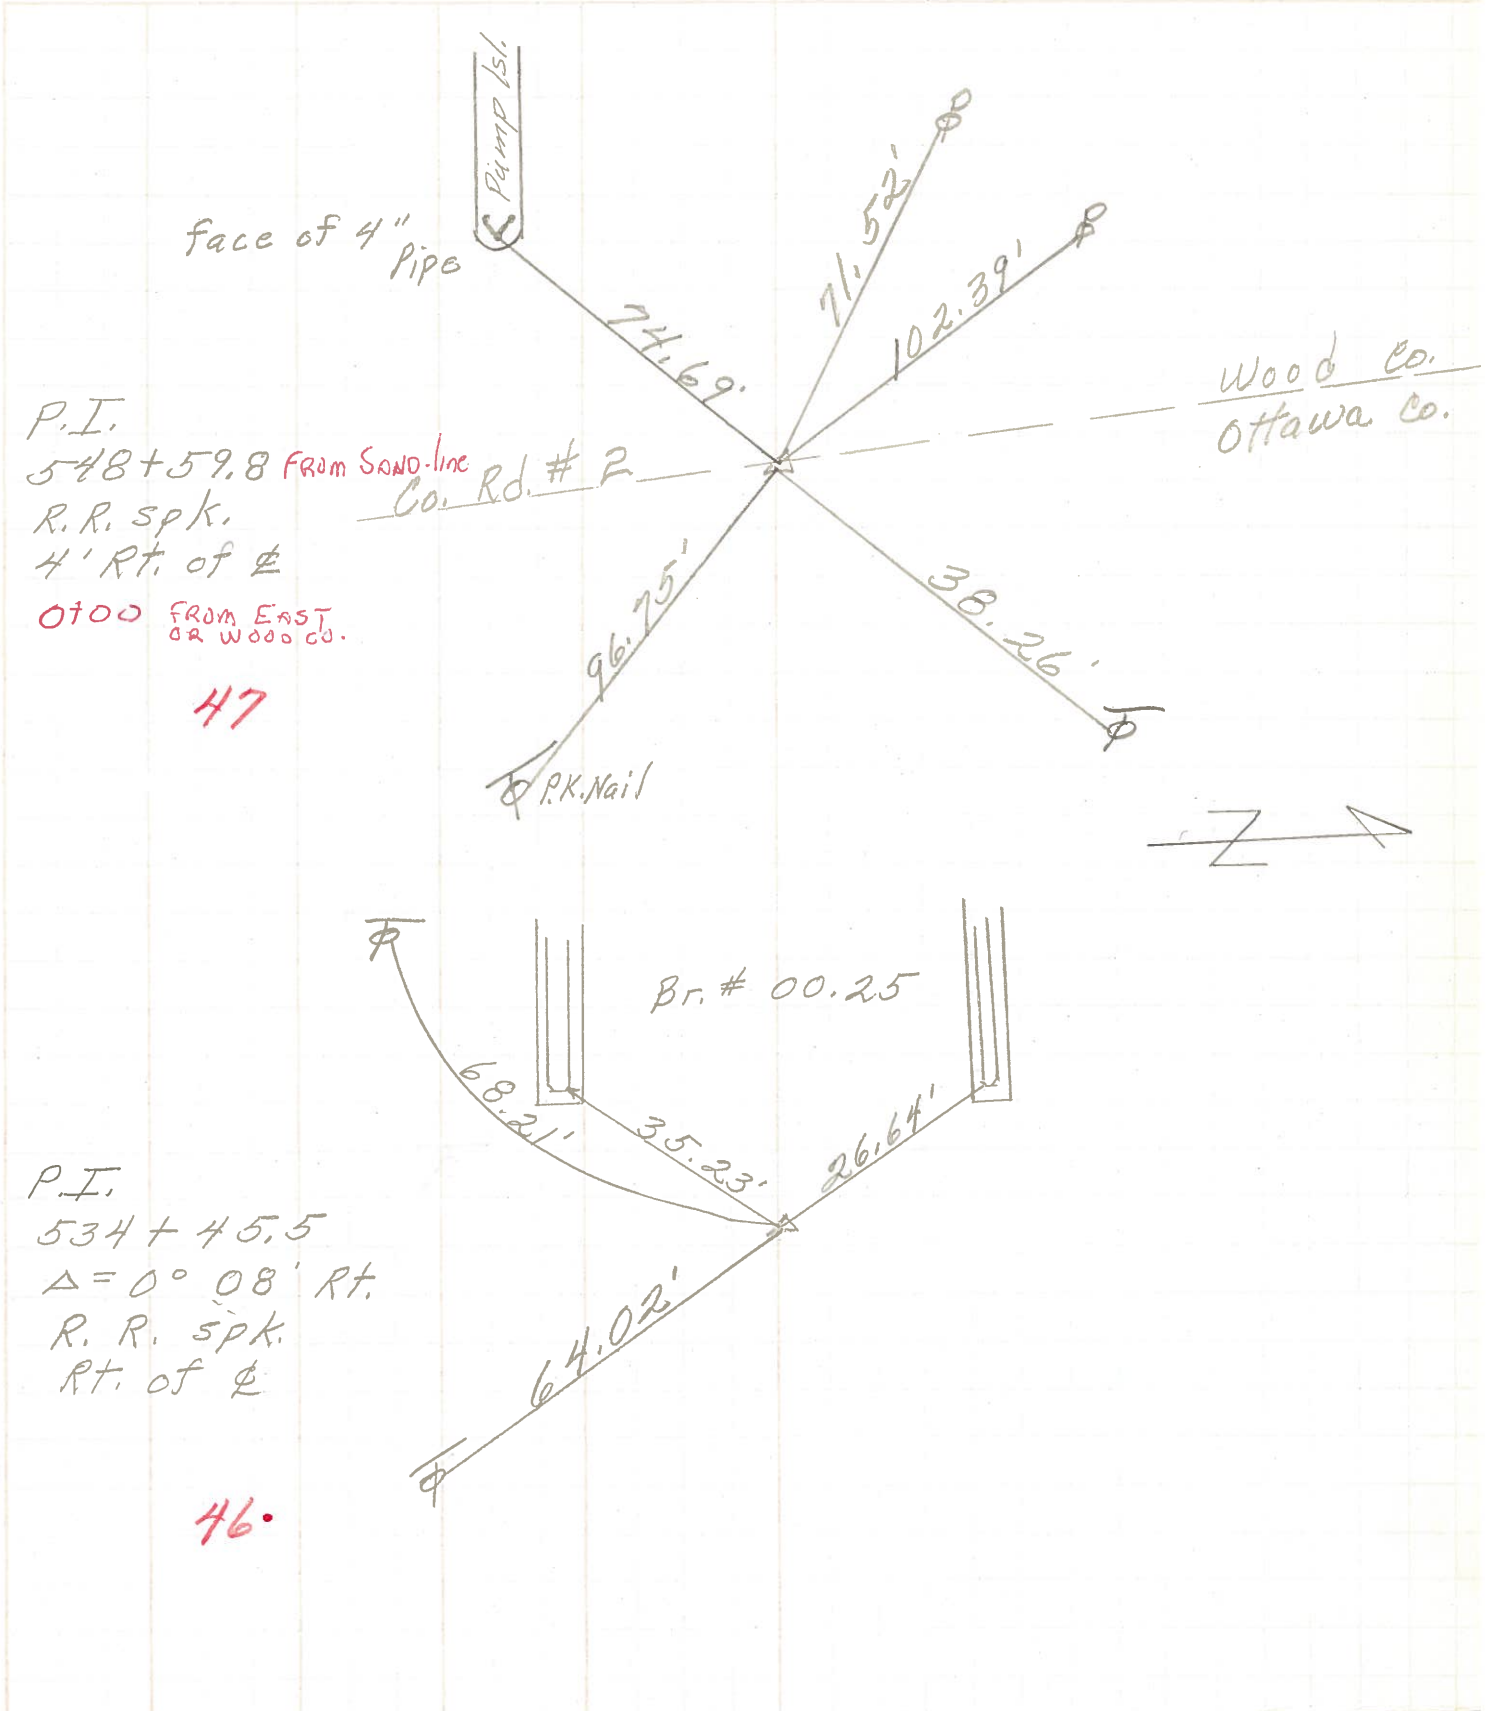 Pump Isl.
face of 4"
Pipe
74.69'
71.52'
102.39'
Wood Co.
Ottawa Co.
P.I.
548+59.8 FROM SAND-line
Co. Rd. # 2
R.R. spk.
4' Rt. of ℄
0+00 FROM EAST
OR WOOD CO.
47
96.75'
38.26'
P.K. Nail
Z
Br. # 00.25
68.21'
35.23'
26.64'
P.I.
534+45.5
Δ = 0° 08' Rt.
R. R. spk.
Rt. of ℄
64.02'
46.